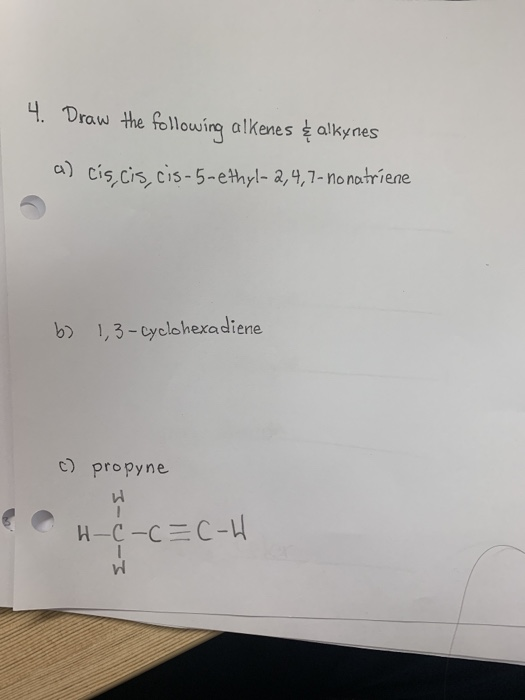 4. Draw the following alkenes & alkynes
a) cis, cis, cis-5-ethyl-2,4,7-nonatriene
b) 1,3-cyclohexadiene
c) propyne
H
H-C-C≡C-H
H